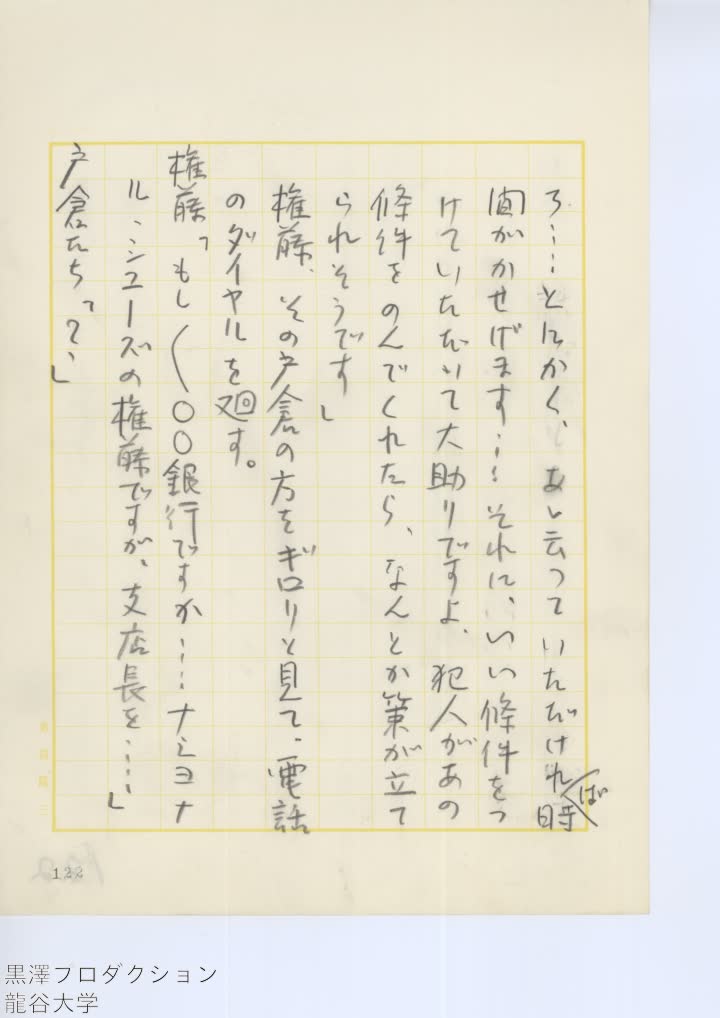 ろ……とにかく、あゝ云っていたゞければ時
間がかせげます……それに、いい條件をつ
けていたゞいて大助りですよ、犯人があの
條件をのんでくれたら、なんとか策が立て
られそうです」
権藤、その戸倉の方をギロリと見て、電話
のダイヤルを廻す。
権藤「もし〱〇〇銀行ですか……ナショナ
ル、シューズの権藤ですが、支店長を……」
戸倉たち「？、」
122
黒澤プロダクション
龍谷大学